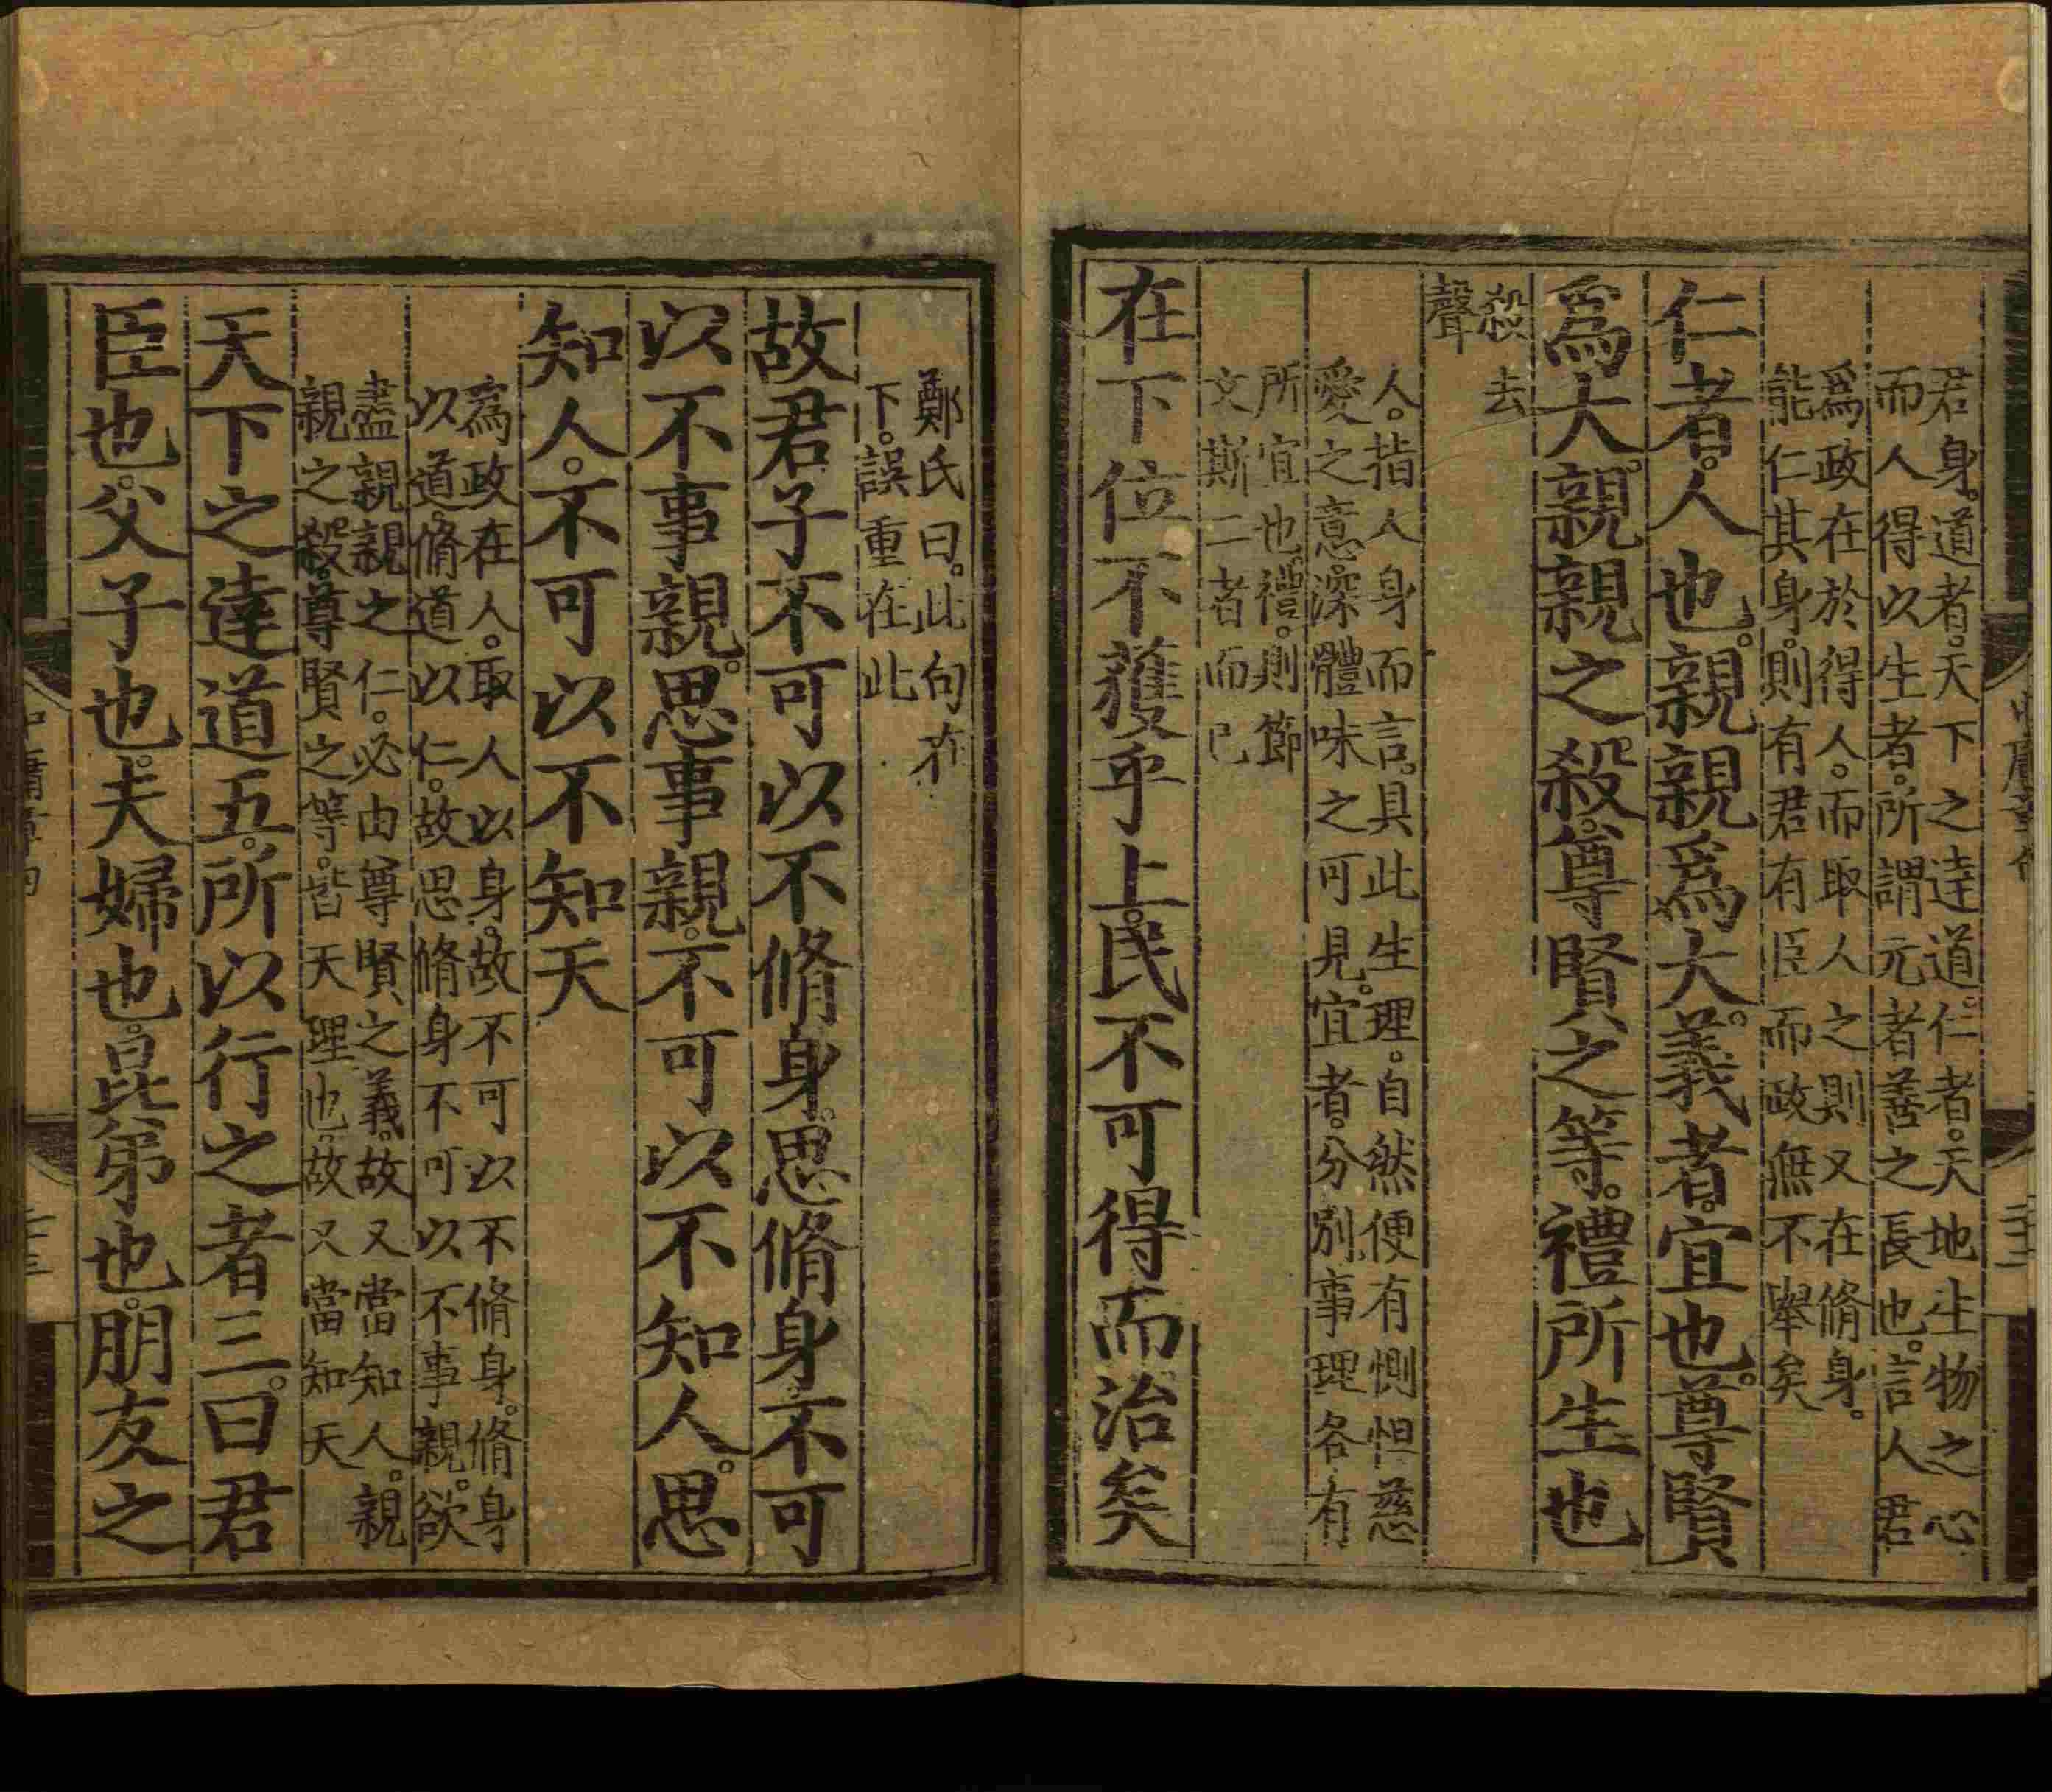 君身。道者。天下之達道。仁者。天地生物之心
而人得以生者。所謂元者善之長也。言人君
爲政在於得人。而取人之則又在脩身。
能仁其身。則有君有臣而政無不舉矣
仁者。人也。親親爲大。義者。宜也。尊賢
爲大。親親之殺。尊賢之等。禮所生也
殺去
聲
人。指人身而言。具此生理。自然便有惻怛慈
愛之意。深體味之可見。宜者。分別事理各有
所宜也。禮。則節
文斯二者而已
在下位不獲乎上。民不可得而治矣
鄭氏曰。此句在
下。誤重在此
故君子不可以不脩身。思脩身。不可
以不事親。思事親。不可以不知人。思
知人。不可以不知天
爲政在人。取人以身。故不可以不脩身。脩身
以道。脩道以仁。故思脩身不可以不事親。欲
盡親親之仁。必由尊賢之義。故又當知人。親
親之殺。尊賢之等。皆天理也。故又當知天
天下之達道五。所以行之者三。曰君
臣也。父子也。夫婦也。昆弟也。朋友之